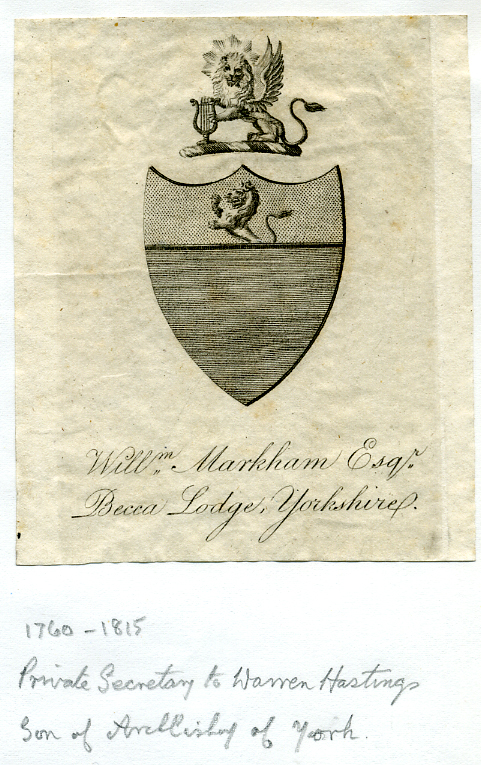 Will.m Markham Esqr.
Becca Lodge, Yorkshire.
1760 - 1815
Private Secretary to Warren Hastings
Son of Archbishop of York.